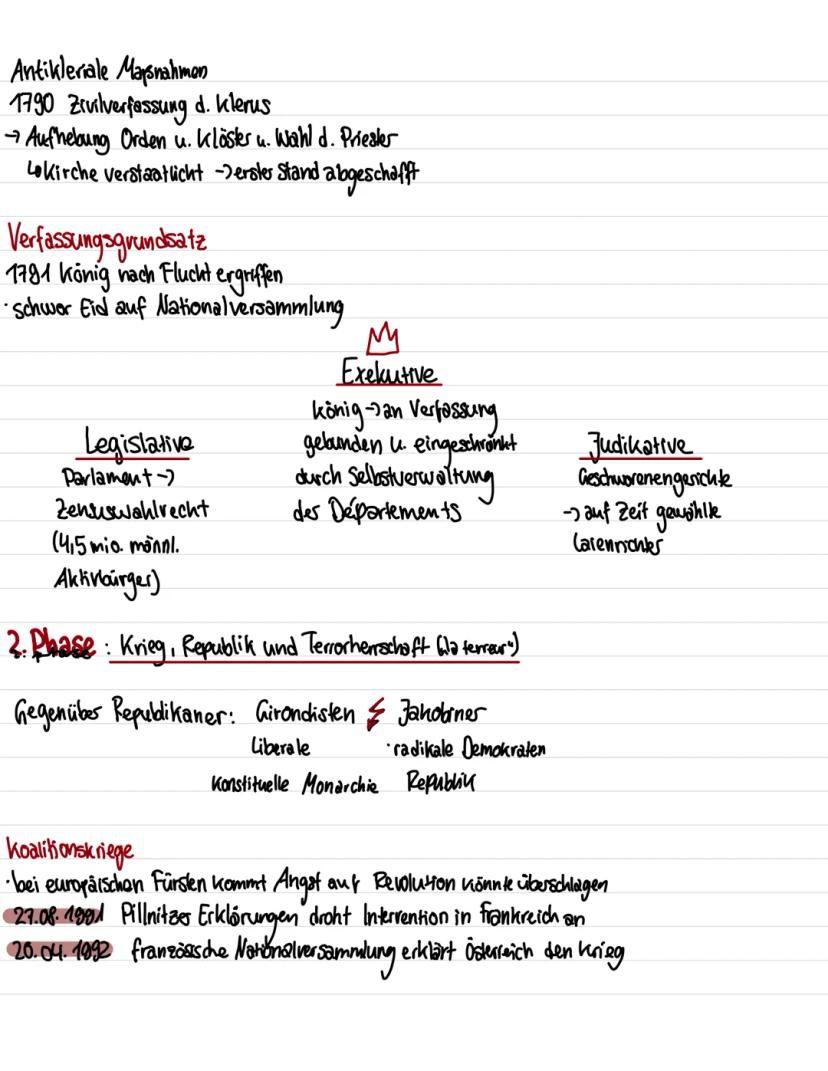 Antikleriale Maßnahmen
1790 Zivilverfassung d. Klerus
→ Aufhebung Orden u. Klöster u. Wahl d. Priester
↳ Kirche verstaatlicht → erster Stand abgeschafft
Verfassungsgrundsatz
1791 König nach Flucht ergriffen
· schwor Eid auf Nationalversammlung
Exekutive
König → an Verfassung
gebunden u. eingeschränkt
durch Selbstverwaltung
des Départements
Legislative
Parlament →
Zensuswahlrecht
(4,5 mio. männl.
Aktivbürger)
Judikative
Geschworenengerichte
→ auf Zeit gewählte
Laienrichter
2. Phase : Krieg, Republik und Terrorherrschaft („la terreur“)
Gegenüber Republikaner: Girondisten ⚡ Jakobiner
Liberale · radikale Demokraten
Konstituelle Monarchie Republik
Koalitionskriege
· bei europäischen Fürsten kommt Angst auf Revolution könnte überschlagen
27.08.1991 Pillnitzer Erklärungen droht Intervention in Frankreich an
20.04.1092 französische Nationalversammlung erklärt Österreich den Krieg